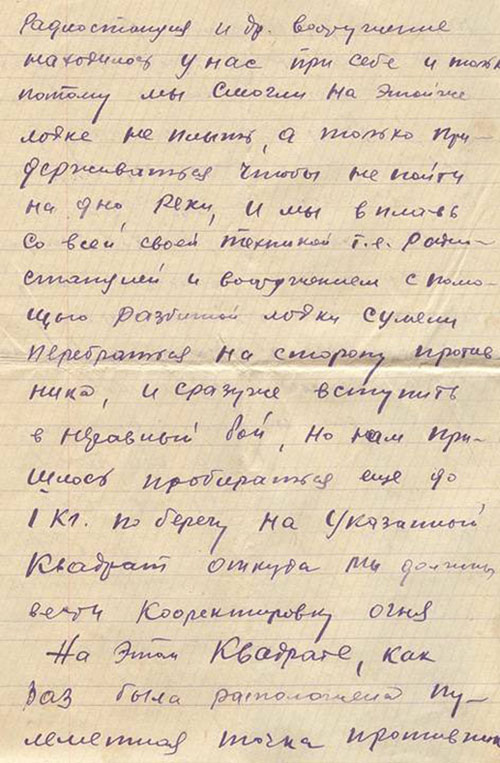 Радиостанция и др. вооружение
находилось у нас при себе и только
потому мы смогли на этой же
лодке не плыть, а только при-
держиваться чтобы не пойти
на дно реки, и мы вплавь
со всей своей техникой т.е. ради-
станцией и вооружением с помо-
щью разбитой лодки сумели
перебраться на сторону против-
ника, и сразуже вступить
в неравный бой, но нам при-
шлось пробираться еще до
1 кг. по берегу на указанной
квадрат откуда мы должны
вести кооректировку огня
На этом квадрате, как
раз была расположена пу-
леметная точка противника